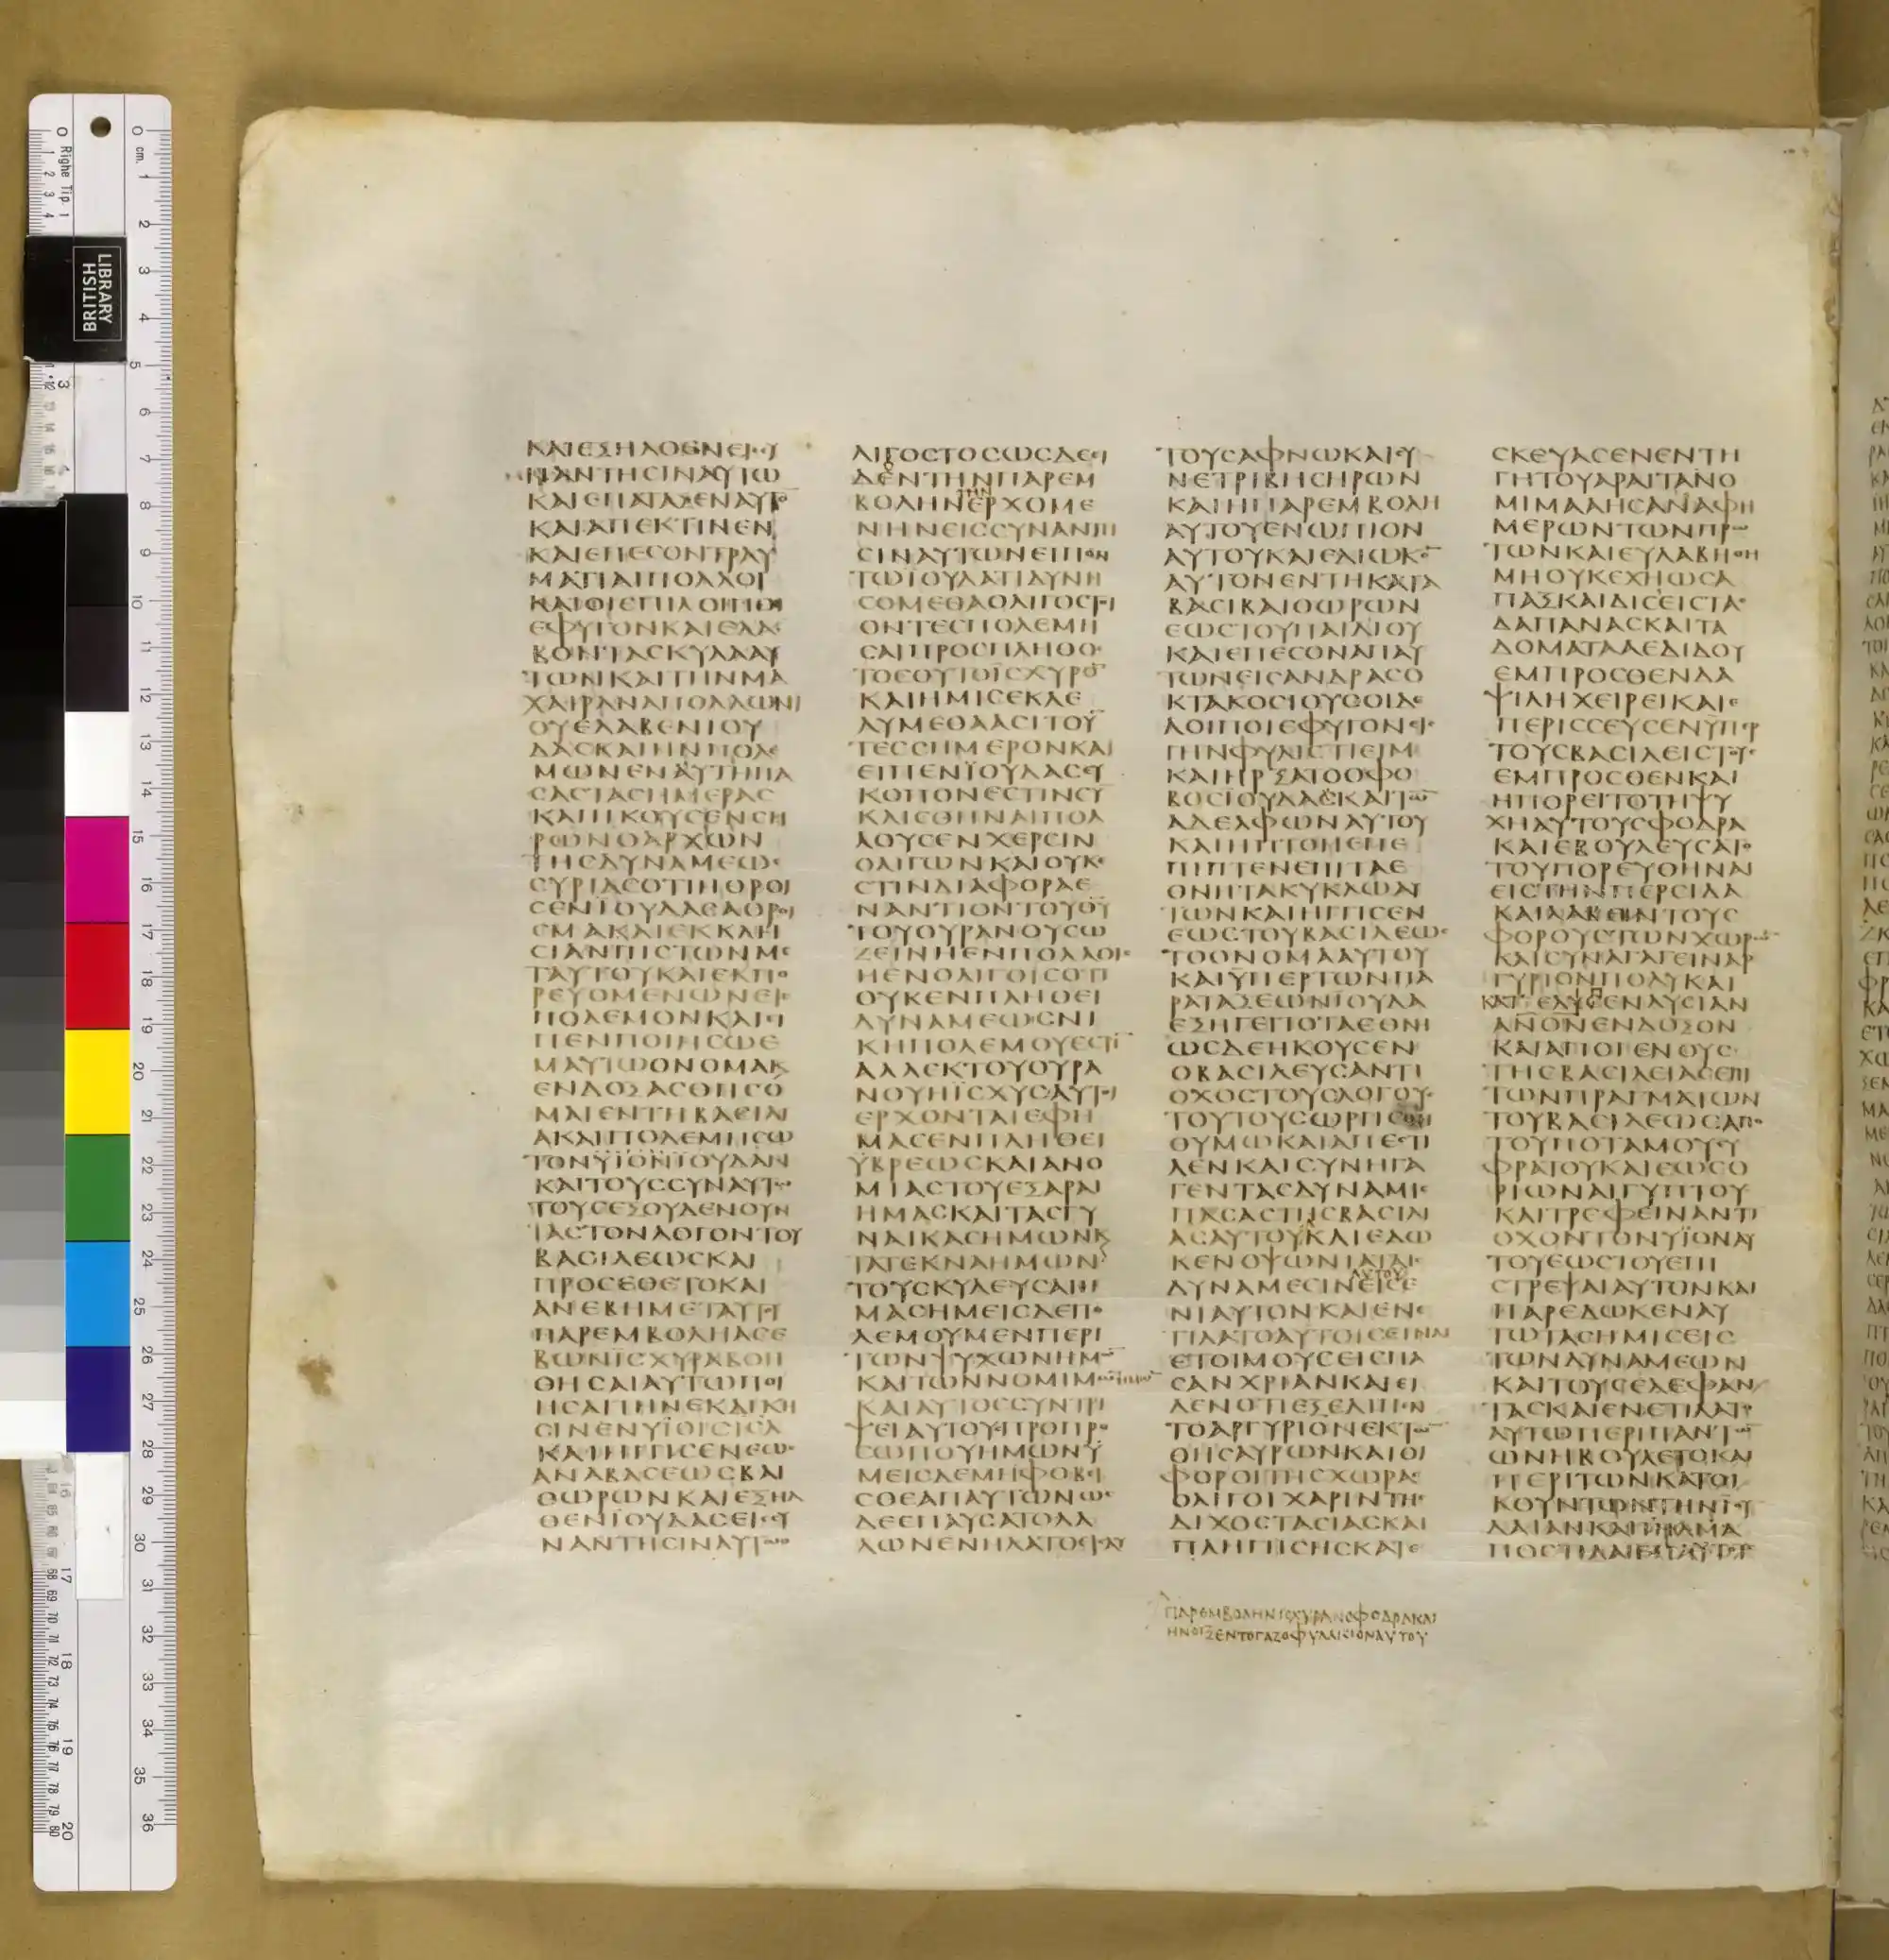 ΚΑΙΕΞΗΛΘΕΝΕΙϹΥ
ΝΑΝΤΗϹΙΝΑΥΤΩ
ΚΑΙΕΠΑΤΑΞΕΝΑΥΤΟ
ΚΑΙΑΠΕΚΤΙΝΕΝ
ΚΑΙΕΠΕϹΟΝΤΡΑΥ
ΜΑΤΙΑΙΠΟΛΛΟΙ
ΚΑΙΟΙΕΠΙΛΟΙΠΟΙ
ΕΦΥΓΟΝΚΑΙΕΛΑ
ΒΟΝΤΑϹΚΥΛΑΑΥ
ΤΩΝΚΑΙΤΗΝΜΑ
ΧΑΙΡΑΝΑΠΟΛΛΩΝΙ
ΟΥΕΛΑΒΕΝΙΟΥ
ΔΑϹΚΑΙΗΝΠΟΛΕ
ΜΩΝΕΝΑΥΤΗΠΑ
ϹΑϹΤΑϹΗΜΕΡΑϹ
ΚΑΙΗΚΟΥϹΕΝϹΗ
ΡΩΝΟΑΡΧΩΝ
ΤΗϹΔΥΝΑΜΕΩϹ
ϹΥΡΙΑϹΟΤΙΗΘΡΟΙ
ϹΕΝΙΟΥΔΑϹΑΘΡΟΙ
ϹΜΑΚΑΙΕΚΚΛΗ
ϹΙΑΝΠΙϹΤΩΝΜΕ
ΤΑΥΤΟΥΚΑΙΕΚΠΟ
ΡΕΥΟΜΕΝΩΝΕΙϹ
ΠΟΛΕΜΟΝΚΑΙΕΙ
ΠΕΝΠΟΙΗϹΩΕ
ΜΑΥΤΩΟΝΟΜΑΚ
ΕΝΔΟΞΑϹΘΗϹΟ
ΜΑΙΕΝΤΗΒΑϹΙΛΙ
ΑΚΑΙΠΟΛΕΜΗϹΩ
ΤΟΝΫΪΟΝΪΟΥΔΑΝ
ΚΑΙΤΟΥϹϹΥΝΑΥΤΩ
ΤΟΥϹΕΞΟΥΔΕΝΟΥΝ
ΤΑϹΤΟΝΛΟΓΟΝΤΟΥ
ΒΑϹΙΛΕΩϹΚΑΙ
ΠΡΟϹΕΘΕΤΟΚΑΙ
ΑΝΕΒΗΜΕΤΑΥΤΟΥ
ΠΑΡΕΜΒΟΛΗΑϹΕ
ΒΩΝΪϹΧΥΡΑΒΟΗ
ΘΗϹΑΙΑΥΤΩΠΟΙ
ΗϹΑΙΤΗΝΕΚΔΙΚΗ
ϹΙΝΕΝΫΪΟΙϹΙϹΛ
ΚΑΙΗΓΓΙϹΕΝΕΩϹ
ΑΝΑΒΑϹΕΩϹΒΑΙ
ΘΩΡΩΝΚΑΙΕΞΗΛ
ΘΕΝΪΟΥΔΑϹΕΙϹΥ
ΝΑΝΤΗϹΙΝΑΥΤΩ
ΛΙΓΟϹΤΟϹΩϹΔΕΙ
ΔΕΝΤΗΝΠΑΡΕΜ
ΒΟΛΗΝΕΡΧΟΜΕ
ΝΗΝΕΙϹϹΥΝΑΝΤΗ
ϹΙΝΑΥΤΩΝΕΙΠΟΝ
ΤΩΪΟΥΔΑΤΙΔΥΝΗ
ϹΟΜΕΘΑΟΛΙΓΟϹΤΟΙ
ΟΝΤΕϹΠΟΛΕΜΗ
ϹΑΙΠΡΟϹΠΛΗΘΟϹ
ΤΟϹΟΥΤΟΪϹΧΥΡΟ
ΚΑΙΗΜΙϹΕΚΛΕ
ΛΥΜΕΘΑΑϹΙΤΟΥ
ΤΕϹϹΗΜΕΡΟΝΚΑΙ
ΕΙΠΕΝΪΟΥΔΑϹΕΥ
ΚΟΠΟΝΕϹΤΙΝϹΥ
ΚΛΙϹΘΗΝΑΙΠΟΛ
ΛΟΥϹΕΝΧΕΡϹΙΝ
ΟΛΙΓΩΝΚΑΙΟΥΚΕ
ϹΤΙΝΔΙΑΦΟΡΑΕ
ΝΑΝΤΙΟΝΤΟΥΘΥ
ΤΟΥΟΥΡΑΝΟΥϹΩ
ΖΕΙΝΗΕΝΠΟΛΛΟΙϹ
ΗΕΝΟΛΙΓΟΙϹΟΤΙ
ΟΥΚΕΝΠΛΗΘΕΙ
ΔΥΝΑΜΕΩϹΝΙ
ΚΗΠΟΛΕΜΟΥΕϹΤΙ
ΑΛΛΕΚΤΟΥΟΥΡΑ
ΝΟΥΗΪϹΧΥϹΑΥΤΟΙ
ΕΡΧΟΝΤΑΙΕΦΗ
ΜΑϹΕΝΠΛΗΘΕΙ
ΫΒΡΕΩϹΚΑΙΑΝΟ
ΜΙΑϹΤΟΥΕΞΑΡΑΙ
ΗΜΑϹΚΑΙΤΑϹΓΥ
ΝΑΙΚΑϹΗΜΩΝΚ
ΤΑΤΕΚΝΑΗΜΩΝ
ΤΟΥϹΚΥΛΕΥϹΑΙΗ
ΜΑϹΗΜΕΙϹΔΕΠΟ
ΛΕΜΟΥΜΕΝΠΕΡΙ
ΤΩΝΨΥΧΩΝΗΜΩ
ΚΑΙΤΩΝΝΟΜΙΜΩ
ΚΑΙΑΥΤΟϹϹΥΝΤΡΙ
ΨΕΙΑΥΤΟΥϹΠΡΟΠΡΟ
ϹΩΠΟΥΗΜΩΝΥ
ΜΕΙϹΔΕΜΗΦΟΒΙ
ϹΘΕΑΠΑΥΤΩΝΩϹ
ΔΕΕΠΑΥϹΑΤΟΛΑ
ΛΩΝΕΝΗΛΑΤΟΕΙϹΑΥ
ΤΟΥϹΑΦΝΩΚΑΙϹΥ
ΝΕΤΡΙΒΗϹΗΡΩΝ
ΚΑΙΗΠΑΡΕΜΒΟΛΗ
ΑΥΤΟΥΕΝΩΠΙΟΝ
ΑΥΤΟΥΚΑΙΕΔΙΩΚΟ
ΑΥΤΟΝΕΝΤΗΚΑΤΑ
ΒΑϹΙΒΑΙΘΩΡΩΝ
ΕΩϹΤΟΥΠΑΙΔΙΟΥ
ΚΑΙΕΠΕϹΟΝΑΠΑΥ
ΤΩΝΕΙϹΑΝΔΡΑϹΟ
ΚΤΑΚΟϹΙΟΥϹΟΙΔΕ
ΛΟΙΠΟΙΕΦΥΓΟΝΕΙϹ
ΓΗΝΦΥΛΙϹΤΙΕΙΜ
ΚΑΙΗΡΞΑΤΟΟΦΟ
ΒΟϹΪΟΥΔΑΚΑΙΤΩ
ΑΔΕΛΦΩΝΑΥΤΟΥ
ΚΑΙΗΠΤΟΗΕΠΕ
ΠΙΠΤΕΝΕΠΙΤΑΕ
ΘΝΗΤΑΚΥΚΛΩΑΥ
ΤΩΝΚΑΙΗΓΓΙϹΕΝ
ΕΩϹΤΟΥΒΑϹΙΛΕΩϹ
ΤΟΟΝΟΜΑΑΥΤΟΥ
ΚΑΙΫΠΕΡΤΩΝΠΑ
ΡΑΤΑΞΕΩΝΪΟΥΔΑ
ΕΞΗΓΕΙΤΟΤΑΕΘΝΗ
ΩϹΔΕΗΚΟΥϹΕΝ
ΟΒΑϹΙΛΕΥϹΑΝΤΙ
ΟΧΟϹΤΟΥϹΛΟΓΟΥϹ
ΤΟΥΤΟΥϹΩΡΓΙϹΘΗ
ΘΥΜΩΚΑΙΑΠΕϹΤΙ
ΛΕΝΚΑΙϹΥΝΗΓΑ
ΓΕΝΤΑϹΔΥΝΑΜΙϹ
ΠΑϹΑϹΤΗϹΒΑϹΙΛΙ
ΑϹΑΥΤΟΥΚΑΙΕΔΩ
ΚΕΝΟΨΩΝΙΑΤΑΙϹ
ΑΥΤΟΥ
ΔΥΝΑΜΕϹΙΝΕΙϹΕ
ΝΙΑΥΤΟΝΚΑΙΕΝΕ
ΤΙΛΑΤΟΑΥΤΟΙϹΕΙΝΑΙ
ΕΤΟΙΜΟΥϹΕΙϹΠΑ
ϹΑΝΧΡΙΑΝΚΑΙΕΙ
ΔΕΝΟΤΙΕΞΕΛΙΠΕΝ
ΤΟΑΡΓΥΡΙΟΝΕΚΤΩ
ΘΗϹΑΥΡΩΝΚΑΙΟΙ
ΦΟΡΟΙΤΗϹΧΩΡΑϹ
ΟΛΙΓΟΙΧΑΡΙΝΤΗϹ
ΔΙΧΟϹΤΑϹΙΑϹΚΑΙ
ΠΛΗΓΗϹΗϹΚΑΤΕ
ΠΑΡΕΜΒΟΛΗΝΙϹΧΥΡΑΝϹΦΟΔΡΑΚΑΙ
ΗΝΟΙΞΕΝΤΟΓΑΖΟΦΥΛΑΚΙΟΝΑΥΤΟΥ
ϹΚΕΥΑϹΕΝΕΝΤΗ
ΓΗΤΟΥΑΡΑΙΤΑΝΟ
ΜΙΜΑΑΗϹΑΝΑΦΗ
ΜΕΡΩΝΤΩΝΠΡΩ
ΤΩΝΚΑΙΕΥΛΑΒΗΘΗ
ΜΗΟΥΚΕΧΗΩϹΑ
ΠΑΞΚΑΙΔΙϹΕΙϹΤΑϹ
ΔΑΠΑΝΑϹΚΑΙΤΑ
ΔΟΜΑΤΑΑΕΔΙΔΟΥ
ΕΜΠΡΟϹΘΕΝΔΑ
ΨΙΛΗΧΕΙΡΕΙΚΑΙΕ
ΠΕΡΙϹϹΕΥϹΕΝΫΠΕΡ
ΤΟΥϹΒΑϹΙΛΕΙϹΤΟΥϹ
ΕΜΠΡΟϹΘΕΝΚΑΙ
ΗΠΟΡΕΙΤΟΤΗΨΥ
ΧΗΑΥΤΟΥϹΦΟΔΡΑ
ΚΑΙΕΒΟΥΛΕΥϹΑΤΟ
ΤΟΥΠΟΡΕΥΘΗΝΑΙ
ΕΙϹΤΗΝΠΕΡϹΙΔΑ
ΚΑΙΛΑΒΕΙΝΤΟΥϹ
ΦΟΡΟΥϹΤΩΝΧΩΡΩ
ΚΑΙϹΥΝΑΓΑΓΕΙΝΑΡ
ΓΥΡΙΟΝΠΟΛΥΚΑΙ
ΚΑΤΕΛΥϹΕΝΛΥϹΙΑΝ
ΑΝΟΝΕΝΔΟΞΟΝ
ΚΑΙΑΠΟΓΕΝΟΥϹ
ΤΗϹΒΑϹΙΛΕΙΑϹΕΠΙ
ΤΩΝΠΡΑΓΜΑΤΩΝ
ΤΟΥΒΑϹΙΛΕΩϹΑΠΟ
ΤΟΥΠΟΤΑΜΟΥΕΥ
ΦΡΑΤΟΥΚΑΙΕΩϹΟ
ΡΙΩΝΑΙΓΥΠΤΟΥ
ΚΑΙΤΡΕΦΕΙΝΑΝΤΙ
ΟΧΟΝΤΟΝΥΪΟΝΑΥ
ΤΟΥΕΩϹΤΟΥΕΠΙ
ϹΤΡΕΨΑΙΑΥΤΟΝΚΑΙ
ΠΑΡΕΔΩΚΕΝΑΥ
ΤΩΤΑϹΗΜΙϹΕΙϹ
ΤΩΝΔΥΝΑΜΕΩΝ
ΚΑΙΤΟΥϹΕΛΕΦΑΝ
ΤΑϹΚΑΙΕΝΕΤΙΛΑΤΟ
ΑΥΤΩΠΕΡΙΠΑΝΤΩ
ΩΝΗΒΟΥΛΕΤΟΚΑΙ
ΠΕΡΙΤΩΝΚΑΤΟΙ
ΚΟΥΝΤΩΝΤΗΝΪΟΥ